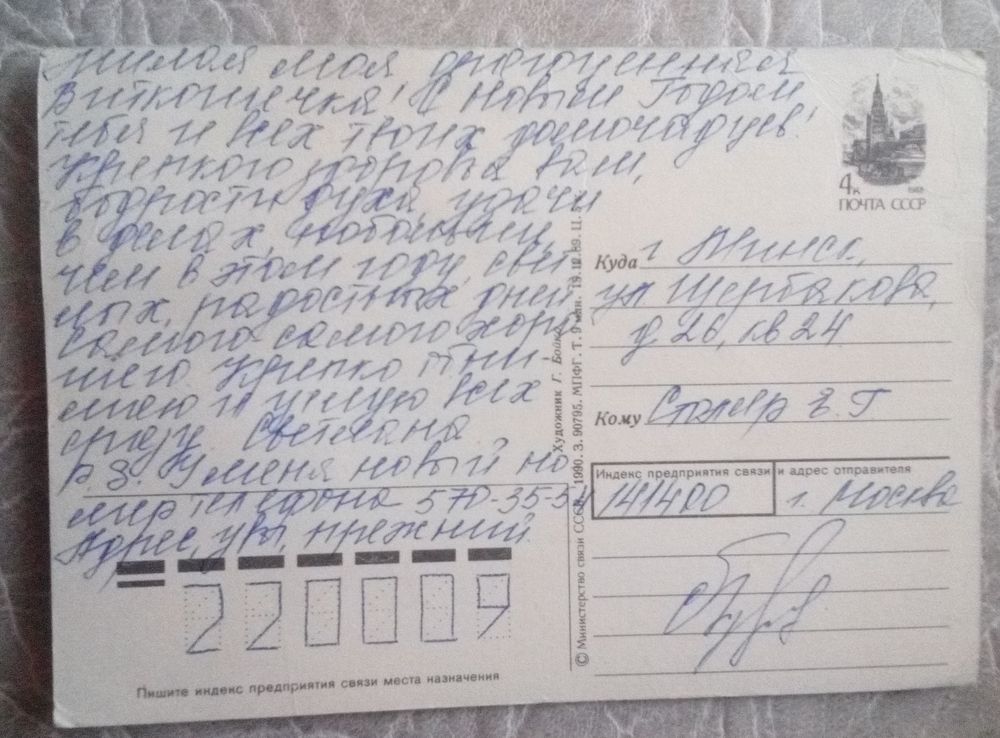 Милая моя драгоценная
Виткошечка! С Новым Годом
тебя и всех твоих домочадцев!
Крепкого здоровья вам,
бодрости духа, удачи
в делах, побольше,
чем в этом году, свет
лых, радостных дней,
самого самого хоро
шего. Крепко обни-
маю и целую всех
сразу. Светлана.
P.S. У меня новый но
мер телефона 570-35-54
Адрес, увы, прежний.
220019
Пишите индекс предприятия связи места назначения
© Министерство связи СССР. 1990. З. 90795. МПФГ. Т. 9 млн. 18.12.89. Ц. 5 к.
Художник Г. Бойко
4к
ПОЧТА СССР
Куда г. Минск,
ул Щербакова,
д 26, кв 24
Кому Е. Г
Индекс предприятия связи и адрес отправителя
141400 г. Москва